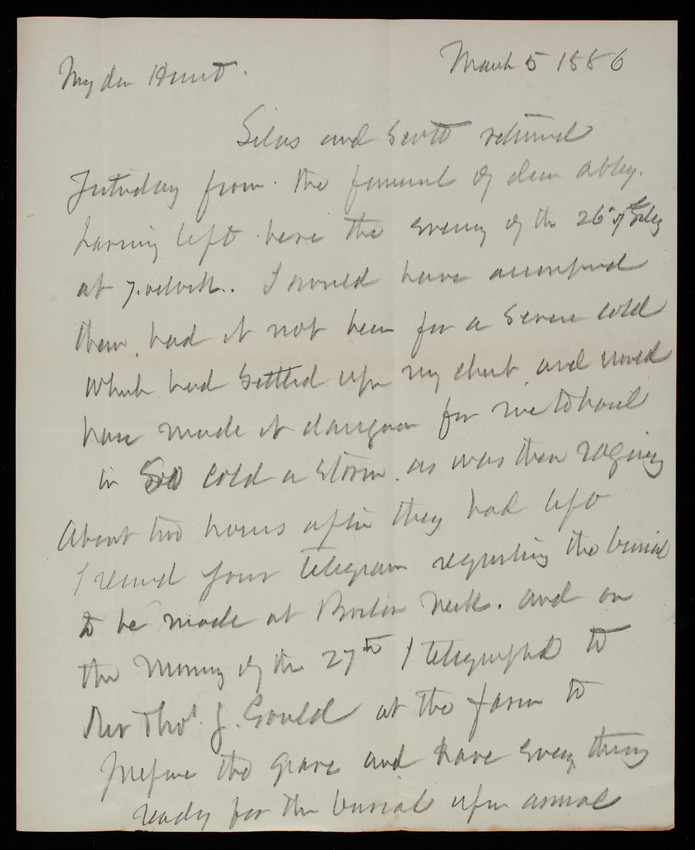 March 5 1886
My dear Hunt.
Silas and Scott returned
Yesterday from the funeral of dear Abby.
having left here the evening of the 26th of Feby
at 7. oclock. I would have accompanied
them, had it not been for a severe cold
which had settled upon my chest and would
have made it dangerous for me to travel
in so cold a storm. as was then raging
About two hours after they had left
I received your telegram requesting the burial
to be made at Boston Neck. and on
the morning of the 27th I telegraphed to
Thos. J. Gould at the farm to
prepare the grave and have every thing
ready for the burial upon arrival